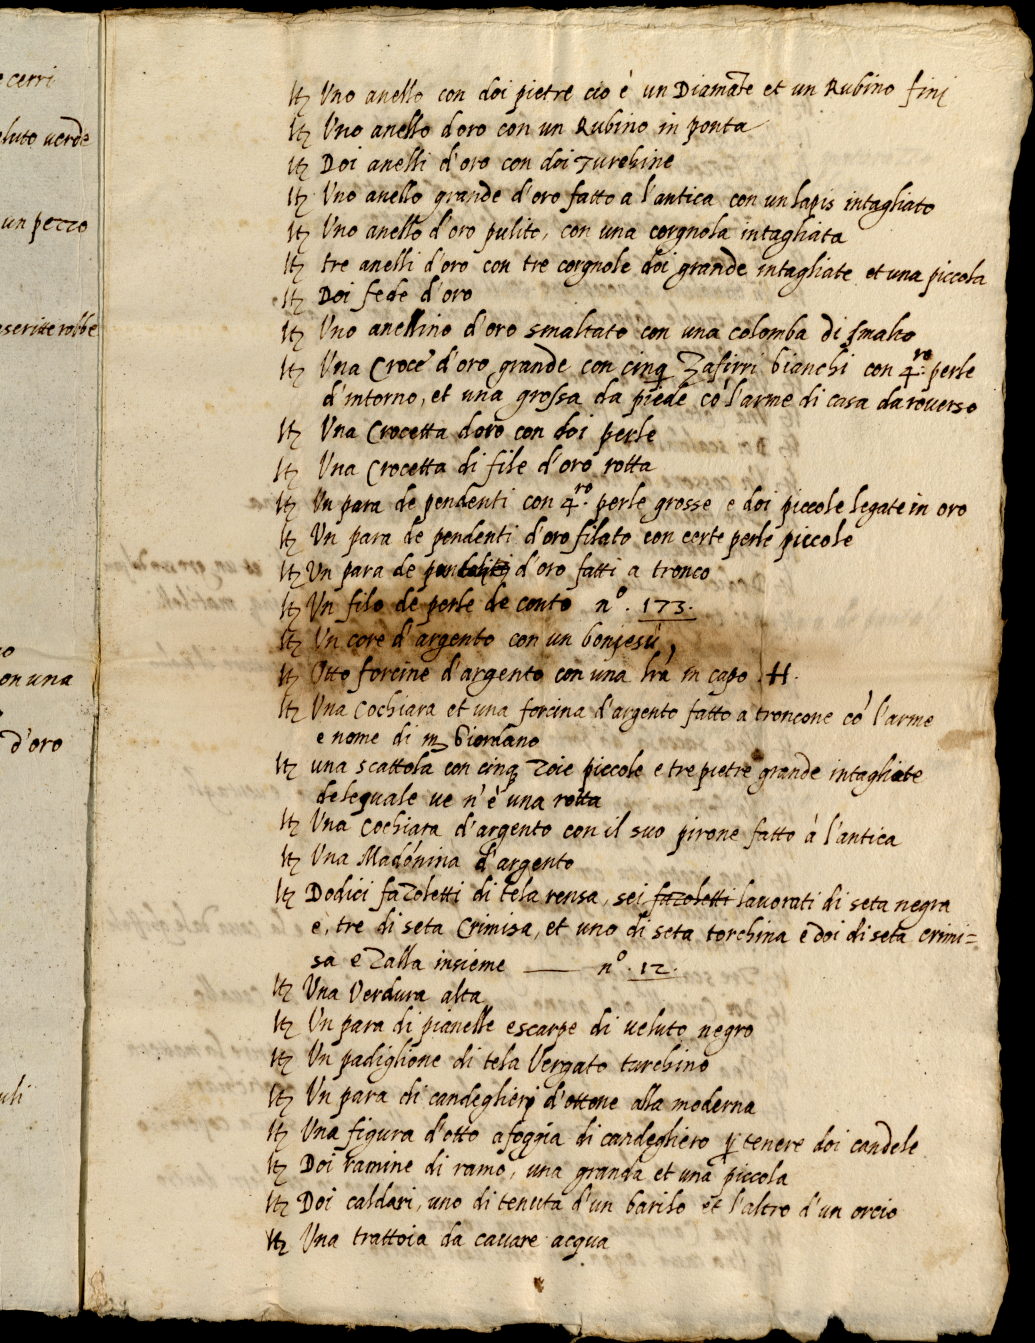 e cerri
eluto verde
un pezzo
escritte robbe
on una
d'oro
uli
Itz Uno anello con doi pietre cio è un Diamāte et un Rubino finj
Itz Uno anello d'oro con un Rubino in ponta
Itz Doi anelli d'oro con doi turchine
Itz Uno anello grande d'oro fatto a l'antica con un lapis intagliato
Itz Uno anello d'oro pulito, con una corgnola intagliata
Itz tre anelli d'oro con tre corgnole doi grande intagliate et una piccola
Itz Doi fede d'oro
Itz Uno anellino d'oro smaltato con una colomba di smalto
Itz Una Croce d'oro grande con cinq Zafirri bianchi con 4.ro perle
d'intorno, et una grossa da piede cō l'arme di casa da roverso
Itz Una Crocetta d'oro con doi perle
Itz Una Crocetta di file d'oro rotta
Itz Un para de pendenti con 4.ro perle grosse e doi piccole legate in oro
Itz Un para de pendenti d'oro filato con certe perle piccole
Itz Un para de d'oro fatti a tronco
Itz Un filo de perle de conto n.o 173.
Itz Un core d'argento con un bonjesù,
Itz Otto forcine d'argento con una lrā in capo .H.
Itz Una Cochiara et una forcina d'argento fatto a troncone cō l'arme
e nome di m Giordano
Itz una scattola con cinq Zoie piccole e tre pietre grande intagliate
delequale ve n'è una rotta
Itz Una Cochiara d'argento con il suo pirone fatto à l'antica
Itz Una Madōnina d'argento
Itz Dodici faZoletti di tela rensa, sei fazoletti lavorati di seta negra
e, tre di seta Crimisa, et uno di seta torchina e doi di seta crimi=
sa e Zalla insieme —— n.o 12.
Itz Una Verdura alta
Itz Un para di pianelle e scarpe di veluto negro
Itz Un padiglione di tela Vergato turchino
Itz Un para di candeglieri d'ottone alla moderna
Itz Una figura d'otto a foggia di candegliero p tenere doi candele
Itz Doi ramine di ramo, una granda et una piccola
Itz Doi caldari, uno di tenuta d'un barilo et l'altro d'un orcio
Itz Una trattoia da cavare acqua